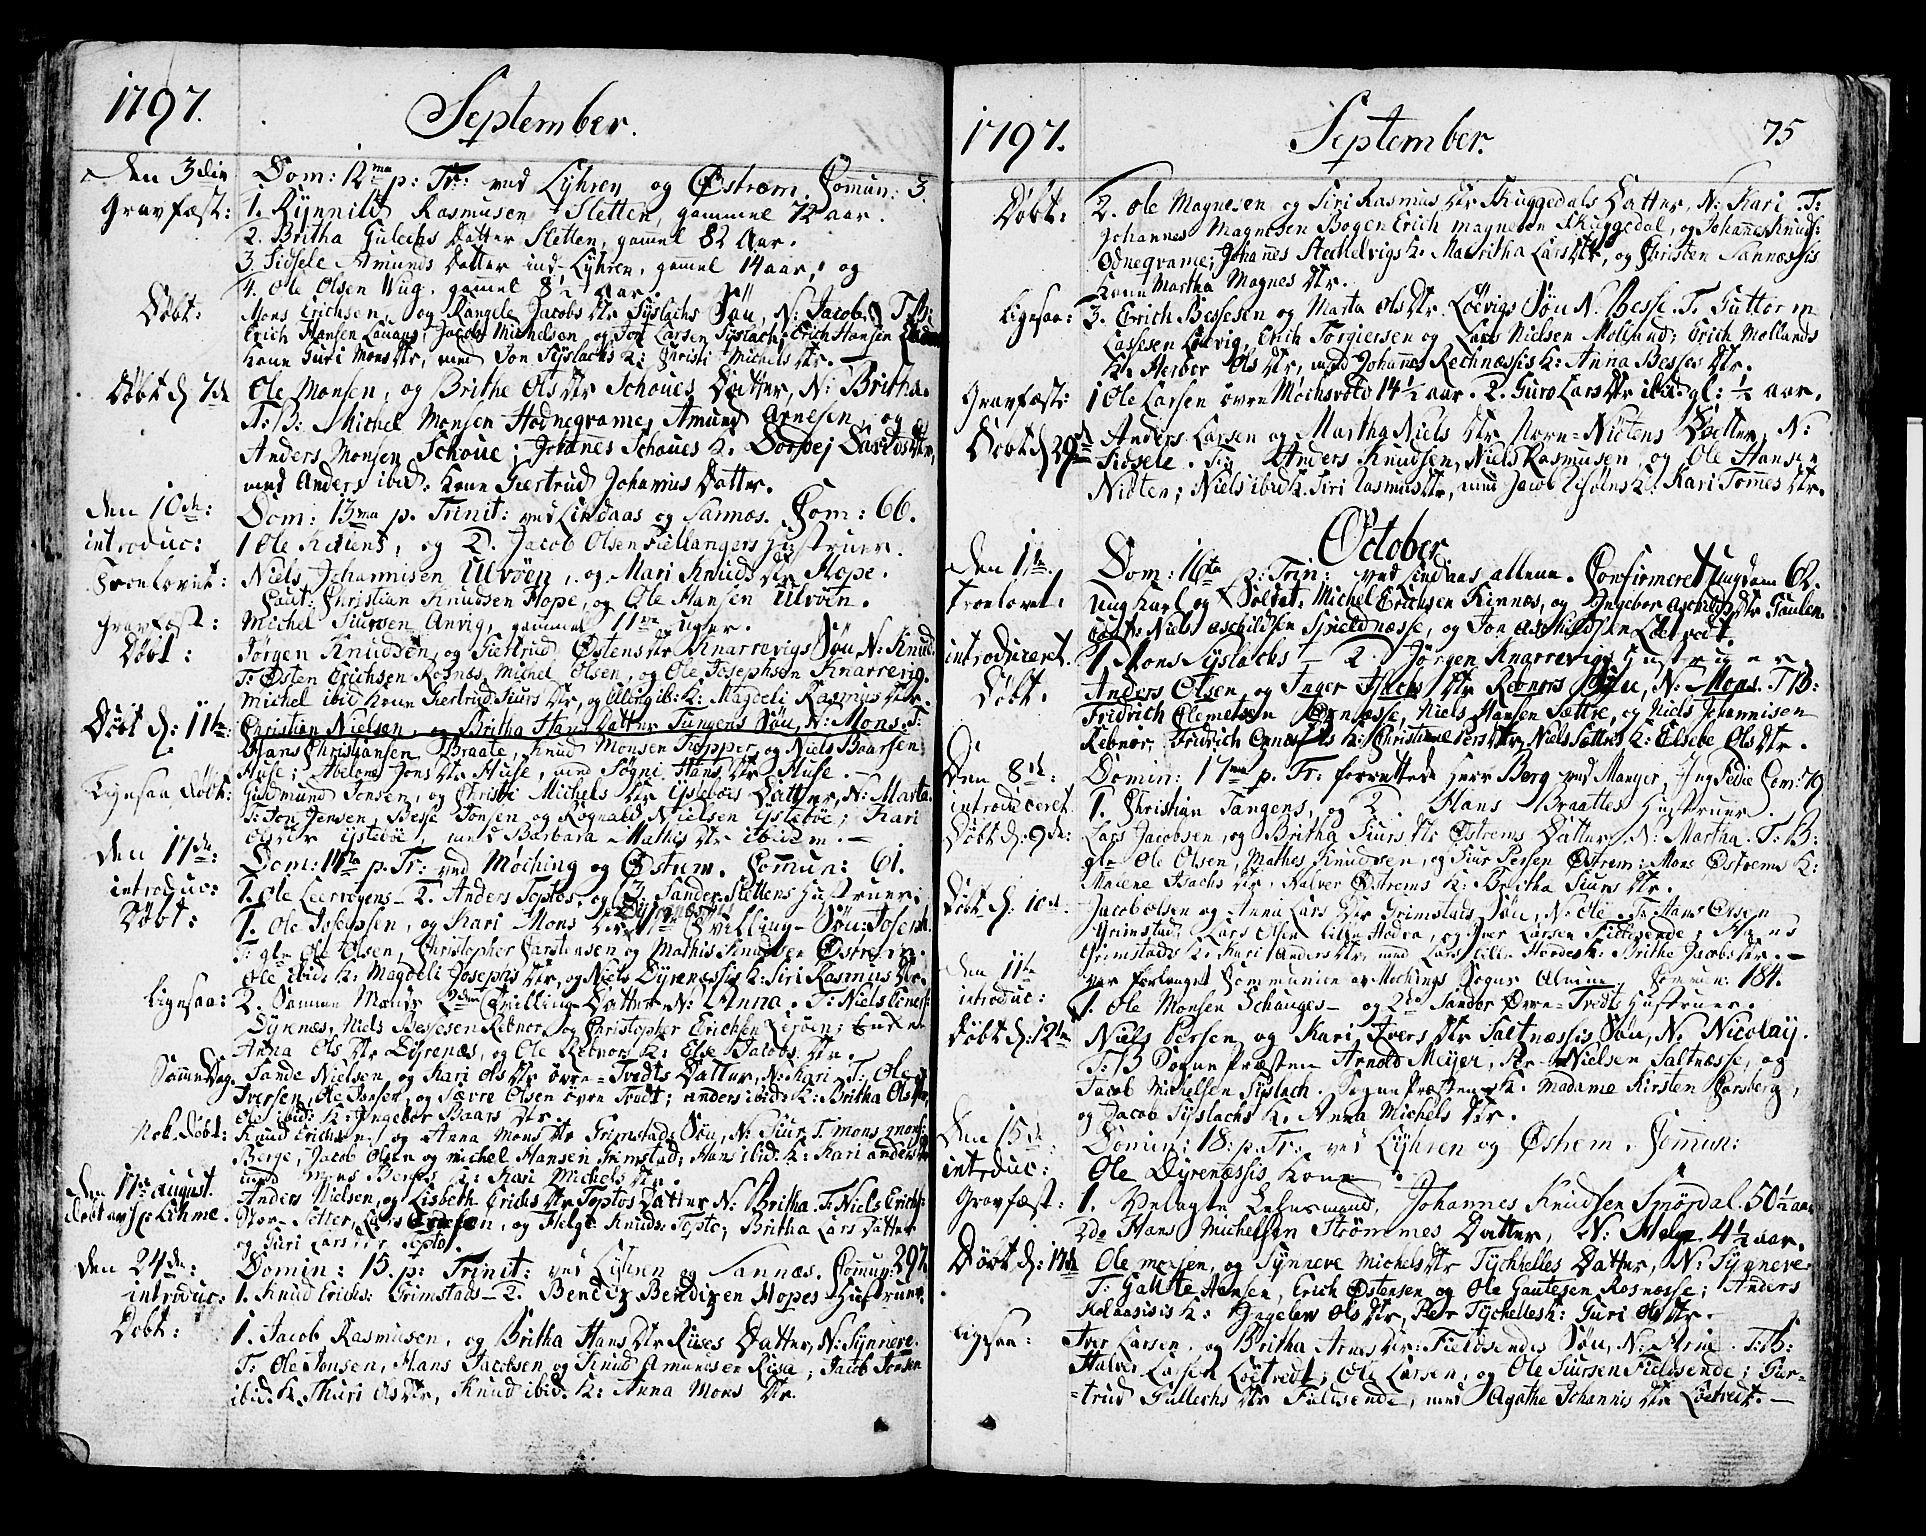 1797.
September.
den 3die Dom: 12ma p: Tr: ved Lyhren og Østrem. Comun: 3.
Gravfæst: 1. Rynnild Rasmusen Sletten, gammel 72 aar.
2. Britha Gulechs Datter Sletten, gaml 82 Aar.
3. Sidsele Amunds Datter ind Lyhren, gaml 14 aar, og
4. Ole Olsen Wug, gaml 8½ Aar.
Døbt: Mons Erichsen, og Rangele Jacobs Dtr Syslachs Søn, N: Jacob. T: B:
Erich Hansen, Jacob Michelsen og Jon Larsen Syslach, Erich Hansen
kone Guri Mons Dtr, med Jon Syslachs K: Christi Michels Dtr.
Døbt d 7de Ole Monsen, og Brithe Ols Dtr Schoues Datter, N: Britha.
T: B: Michel Monsen Hodnegrame, Amund Arnesen, og
Anders Monsen Schoue; Johanes Schoues K. Davids Dtr,
med Anders ibid: kone Giertrud Johannes Datter.
den 10de: Dom: 13ma p. Trinit: ved Lindaas og Sannæs. Com: 66.
introduc: 1 Ole, og 2. Jacob Olsen Fiellangers Hustruer.
Troelovet: Niels Johannisen Ulvøen, og Mari Knuds Dtr Hope.
Caut: Christian Knudsen Hope, og Ole Hansen Ulvøen.
Gravfæst: Michel Siursen Anvig, gammel 11 uger.
Døbt: Jørgen Knudsen, og Giertrud Østens Dtr Knarrevigs Søn N: Knud.
T: Østen Erichsen Rosnæs, Michel Olsen, og Ole Josephsen Knarrevig.
Michel ibid kone Giertrud Siurs Dtr, og ib: K: Magdeli Rasmus Dtr.
Døbt d: 11te: Christian Nielsen, og Britha Hans Datter Tangens Søn, N: Mons. T:
Hans Christiansen Braate, Knud Monsen, og Niels Baarsen
Huse; Abelone Jons Dtr Huse, med Søgni Hans Dtr Huse.
Ligesaa Døbt: Guldmund Jonsen, og Christi Michels Dtr Datter, N: Marta.
T: Jon Jensen, Besse Jonsen og Rognald Nielsen; Kari
Ols Dtr, med Barbara Mathis Dtr ibidem.
den 17de: Dom: 14ta p. Tr: ved Moching og Østrem. Comun: 61.
introduc: 1. Ole Leervogens 2. Anders Toptos, og 3. Sander Slettens Hustruer;
Døbt: 1. Ole Josepsen, og Kari Mons Dtr Tvilling Søn: Joseph.
T: gle Ole Olsen, Christopher Carstensen og Mathis Knudsen Østrem.
Ole ibid: K: Magdeli Josephs Dtr, og Niels Dyrenæssis K: Siri Rasmus Dtr.
ligesaa: 2. Samme Mands Tvilling Datter N: Anna. T: Niels
Dyrenæs, Niels Bessesen Rebnor, og Christopher Erichsen;
Anna Ols Dtr Dyrenæs, og Ole Rebnors K: Else Jacobs Dtr.
Samme Dag. Sande Nielsen, og Kari Ols Dtr øvre Tvedts Datter, N: Kari. T: Ole
Iversen, Ole Jonsen, og Siurre Olsen øvre Tvedt; anders ibid: K: Britha Ols Dtr,
Ole ibid: K: Ingebor Baars Dtr.
Nok Døbt: Knud Erichsen, og Anna Mons Dtr Grimstads Søn, N: Siur. T: mons mons:
Berge, Jacob Olsen og michel Hansen Grimstad; Hans ibid: K: Kari anders Dtr
med Mons Berges K: Kari Michels Dtr.
den 17de august Anders Nielsen, og Lisbeth Erichs Dtr Toptos Datter N: Britha. T: Niels Erichs:
døbt av Hr Lihme. og Helge Knuds: Topto; Britha Lars Datter
og Guri Lars Dtr Topto.
den 24de: Domin: 15. p: Trinit: ved Lyhren og Sannæs. Comun: 297.
introduc: 1. Knud Erichs: Grimstads 2. Bendix Bendixen Hopes Hustruer.
Døbt: 1. Jacob Rasmusen, og Britha Hans Dtr Rises Datter, N: Synnere.
T: Ole Jonsen, Hans Jacobsen og Knud Amundsen Risa; Jacob Jonsen
ibid: K. Thuri Ols Dtr, Knud ibid: K: Anna Mons Dtr.
1797.
September.
75
Døbt: 2. Ole Magnesen og Siri Rasmus Dtr Skuggedals Datter, N: Kari. T:
Johannes Magnesen Bogen Erich magnesen Skuggedal, og Johannes Knuds:
Odnegrame; Johannes Hechelvigs K. Maritha Lars Dtr, og Christen Sannæssis
Kone Martha Magnes Dtr.
Ligesaa: 3. Erich Bessesen og Marta Ols Dtr Løevigs Søn N. Besse. T. Guttorm
Lassesen Løevig, Erich Torgiersen og Lars Nielsen Molland; Erich Mollands
K. Herbor Ols Dtr, med Johannes Rechnæssis K: Anna Besses Dtr.
Gravfæst: 1 Ole Larsen øvre Mochsvold 14½ aar. 2. Guro Lars Dtr ibid. gl: ½ aar.
Døbt d 29de Anders Larsen og Martha Niels Dtr Norn-Nidtens Datter, N:
Sidsele. T: Anders Knudsen, Niels Rasmusen, og Ole Hansen
Nidten; Niels ibid K. Siri Rasmus Dtr, med Jacob K: Kari Tomes Dtr.
October
den 1te. Dom: 16ta p: Trin: ved Lindaas allene. Confirmeret Ungdom 62.
troelovet: Ung Karl og Soldat: Michel Erichsen Kinnæs, og Ingebor Aschilds Dtr Fonlen.
Caut: Niels Aschildsen Spieldnæsse, og Jon Aschildsen Løtvedt.
introduceret. 1. Mons Syslachs 2. Jørgen Knarrevigs Hustruer.
Døbt. Anders Olsen, og Inger Isachs Dtr Rebnors Søn, N: Mons. T B:
Fridrich Clemetsen Ornæsse, Niels Hansen Sættre, og Niels Johannisen
Rebnor, Fridrich Ornæssis K: Christiane Pers Dtr, Niels Sættres K: Elsebe Ols Dtr.
Den 8de: Domin: 17ma p. Tr: forrettede Herr Berg ved Manger, Ingen Com: 79
introduceret 1. Christian Tangens, og 2. Hans Braattes Hustruer.
Døbt d. 9de: Lars Jacobsen, og Britha Siurs Dtr Østrems Datter, N: Martha. T: B:
gle Ole Olsen, Mathes Knudsen, og Siur Persen Østrem; Mons Østrems K:
Malene Isachs Dtr, Halver Østrems K: Britha Siurs Dtr.
Døbt d: 10de. Jacob olsen og Anna Lars Dtr Grimstads Søn, N: Ole. T: Hans Olsen
Grimstad, Lars Olsen lille Hodra, og Iver Larsen Fieldsende; Hans
Grimstads K: Kari Anders Dtr, med Lars lille Hordes K: Brithe Jacobs Dtr.
den 11te var forlanget Communion av Mochings Sogns Almue, Comun: 184.
introduc: 1. Ole Monsen Schauges og 2de Sander Øvre-Tvedts Hustruer.
Døbt d: 12te Niels Persen og Kari Ivers Dtr Saltnæssis Søn, N: Nicolay.
T: B Sogne Præsten Arnold Meyer, Per Nielsen Saltnæsse, og
Jacob Michelsen Syslach. Sogne Præstens K. Madame Kirsten Forsberg,
og Jacob Syslachs K. Anna Michels Dtr.
den 15de Domin: 18. p. Tr: ved Lyhren og Østrem. Comun:
introduc: Ole Dyrenæssis Kone.
Gravfæst: 1. Velagte Lehnsmand, Johannes Knudsen Spiørdal. 50½ aar
2de Hans Michelsen Strømmes Datter, N: 4½ aar.
Døbt d: 17de Ole monsen, og Synnere Michels Dtr Tychkelles Datter, N: Synnere.
T: Gaute Hansen, Erich Østensen og Ole Gautesen Rosnæsse; Anders
Kolaasis K: Ingebor Ols Dtr, Peer Tychelles K: Guri Ols Dtr.
ligesaa: Iver Larsen, og Britha Arnes Dtr Fieldsendes Søn, N: Arne. T: B:
Halver Larsen Løetvedt, Ole Larsen, og Ole Siursen Fieldsende; Gur-
trud Gullechs Dtr Fieldsende, med Agathe Johannis Dtr Løetvedt.